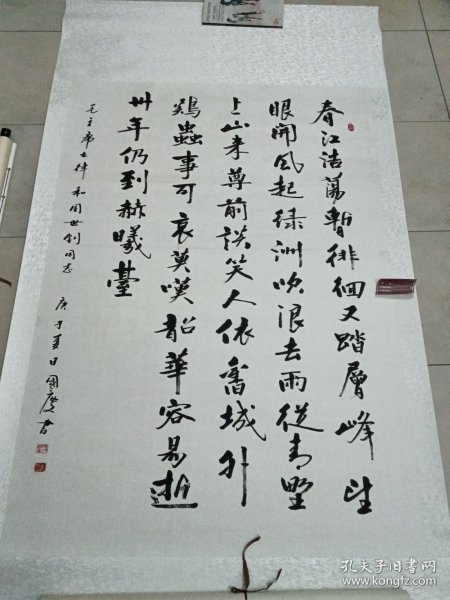 春江浩蕩暫徘徊又踏層峰望
眼開风起緑洲吹浪去雨從青野
上山來尊前談笑人依舊域外
鷄蟲事可哀莫嘆韶華容易逝
卅年仍到赫曦臺
毛主席七律和周世釗同志 庚子夏日國慶書
孔夫子旧书网
www.kongfz.com